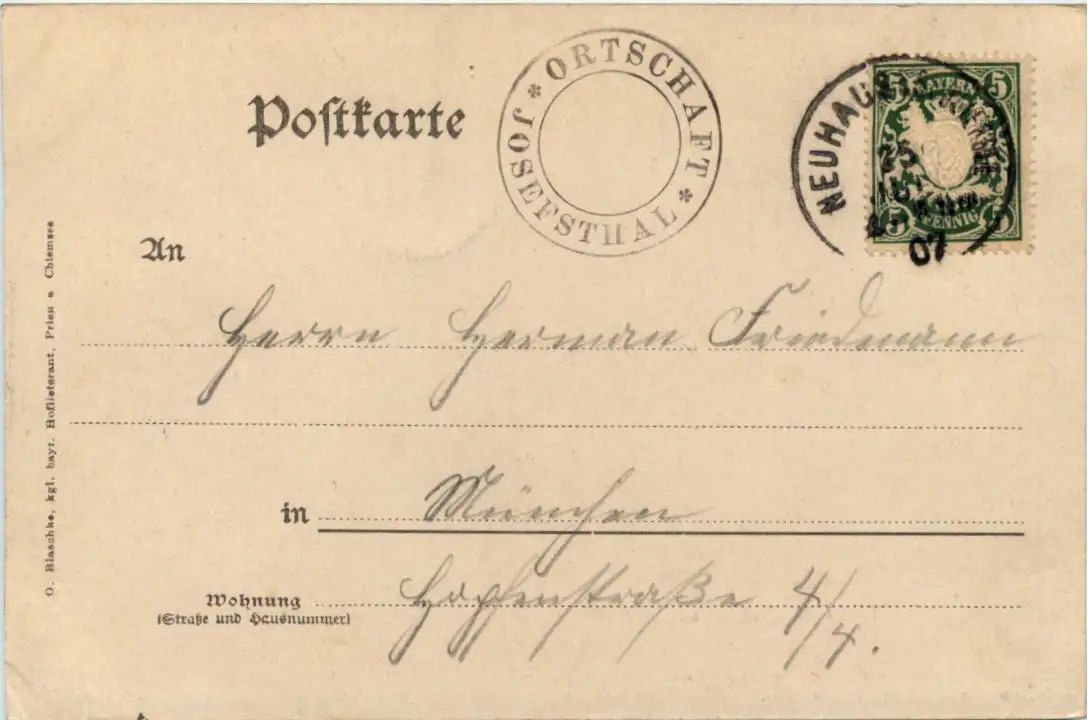 Postkarte
* ORTSCHAFT * JOSSEFSTHAL
NEUHAUS
25
07
5 5
BAYERN
PFENNIG
5 5
An
Herrn Herman Friedmann
in München
Wohnung Hopfenstraße 4/4.
(Straße und Hausnummer)
O. Blaschke, kgl. bayr. Hoflieferant, Prien a Chiemsee